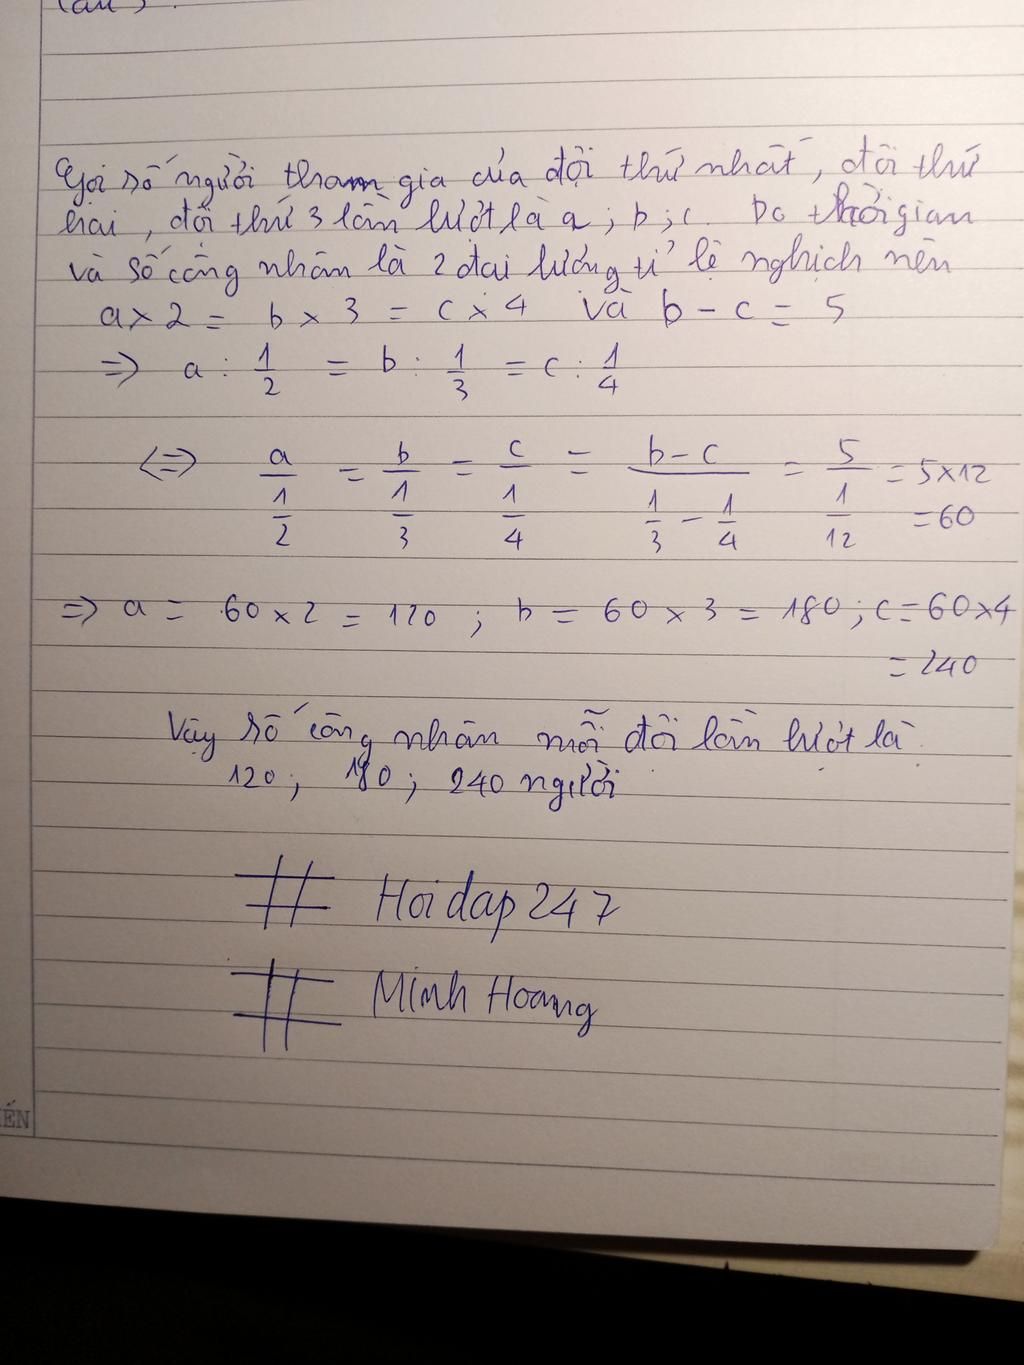 Gọi số người tham gia của đội thứ nhất, đội thứ
hai, đội thứ 3 lần lượt là a; b; c. Do thời gian
và số công nhân là 2 đại lượng tỉ lệ nghịch nên
a x 2 = b x 3 = c x 4 và b - c = 5
=> a : 1/2 = b : 1/3 = c : 1/4
<=> a/(1/2) = b/(1/3) = c/(1/4) = (b-c)/(1/3 - 1/4) = 5/(1/12) = 5x12
= 60
=> a = 60 x 2 = 120 ; b = 60 x 3 = 180 ; c = 60 x 4
= 240
Vậy số công nhân mỗi đội lần lượt là
120; 180; 240 người
# Hoidap247
# Minh Hoang
ẾN